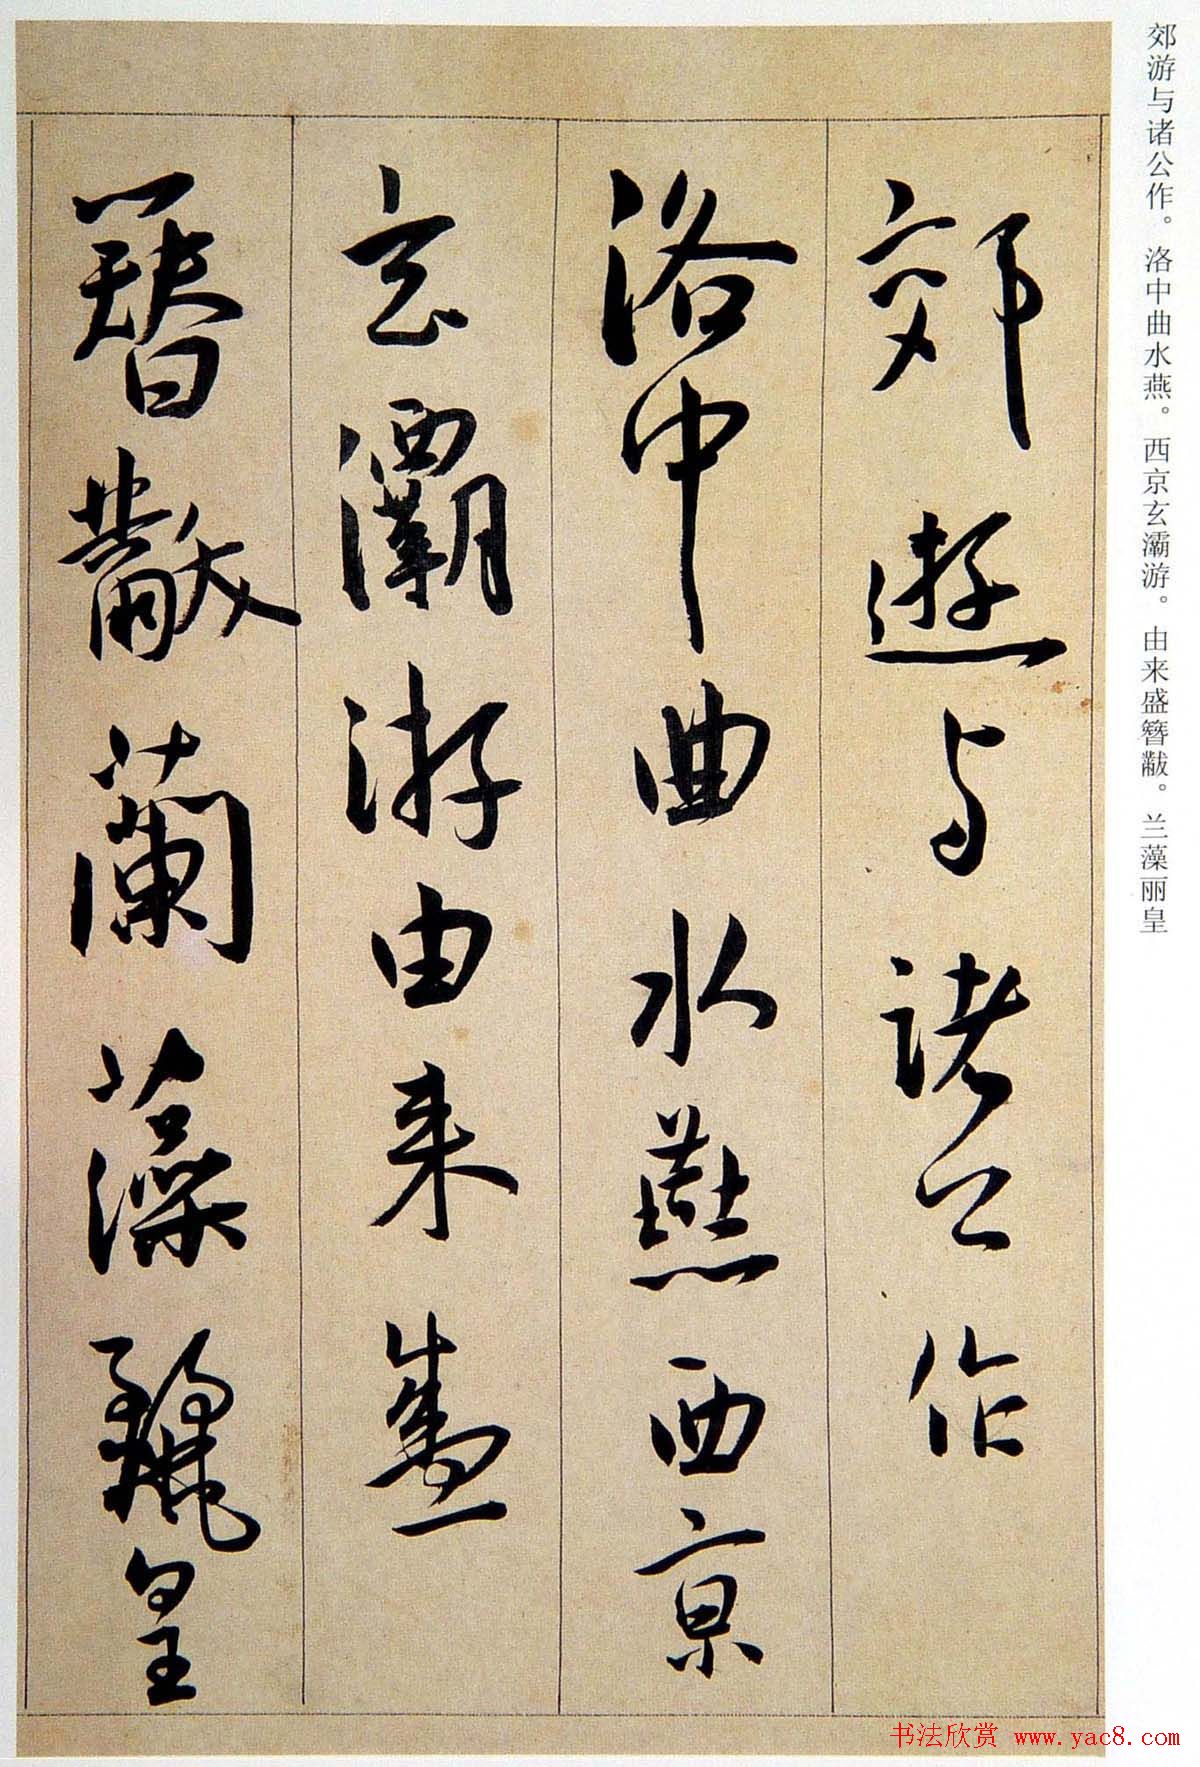 郊游与诸公作。洛中曲水燕。西京玄灞游。由来盛簪黻。兰藻丽皇
郊遊与諸公作
洛中曲水燕西京
玄灞游由来盛
簪黻蘭藻麗皇
书法欣赏 www.yac8.com